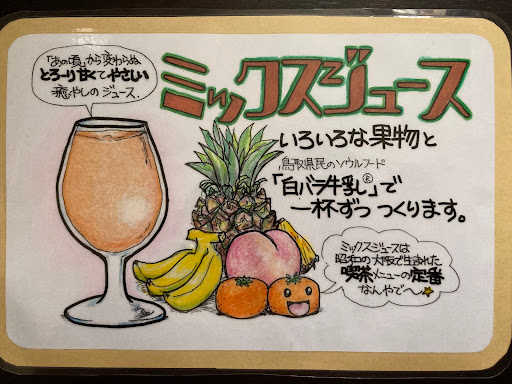 「あの頃」から変わらぬ
とろーり甘くてやさしい
癒やしの ジュース.
ミックスジュース
いろいろな果物と
鳥取県民のソウルフード
「白バラ牛乳®」で
一杯ずつ つくります。
ミックスジュースは
昭和の大阪で生まれた
喫茶メニューの定番
なんやで〜